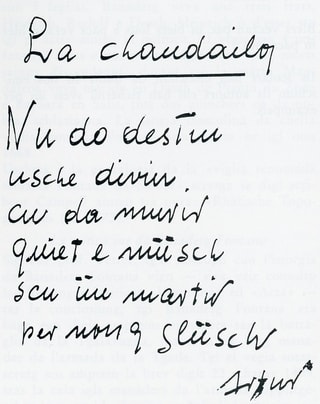 La chandaila
Nu do destin
usche divin,
cu da murir
quiet e müsch
scu ün martir
per nossa glüsch
Artur